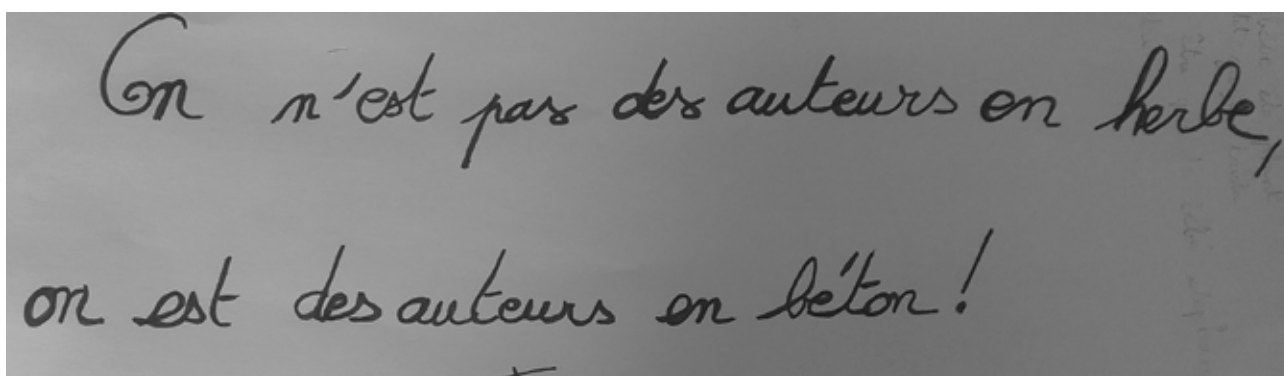 On n'est pas des auteurs en herbe,
on est des auteurs en béton !